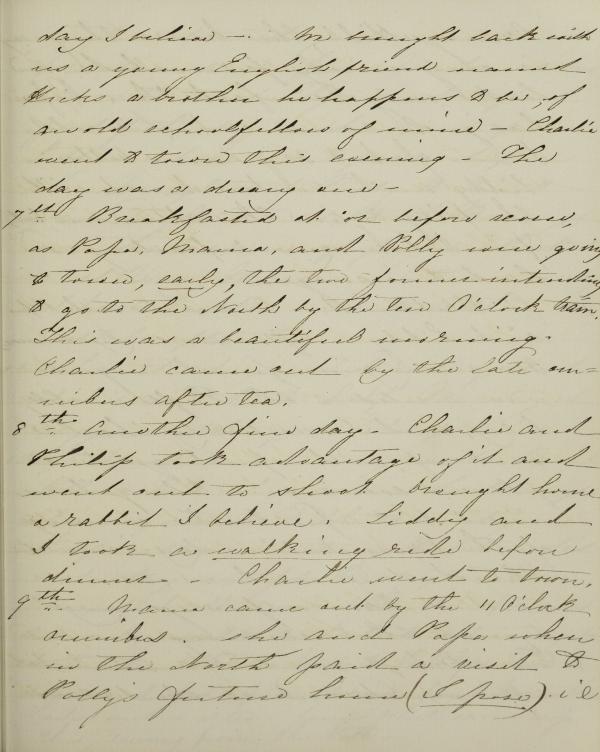 day I believe —. We brought back with
us a young English friend named
Hicks a brother he happens to be, of
an old schoolfellow of mine — Charlie
went to town this evening — The
day was a dreary one —
7th Breakfasted at or before seven,
as Papa, Mama, and Polly were going
to town, early, the two former intending
to go to the North by the ten O'clock train.
This was a beautiful morning.
Charlie came out by the late om=
nibus after tea.
8th Another fine day. Charlie and
Philip took advantage of it and
went out to shoot brought home
a rabbit I believe. Liddy and
I took a walking ride before
dinner — Charlie went to town.
9th. Mama came out by the 11 O'clock
omnibus. She and Papa when
in the North paid a visit to
Polly's future home (I pose). i.e